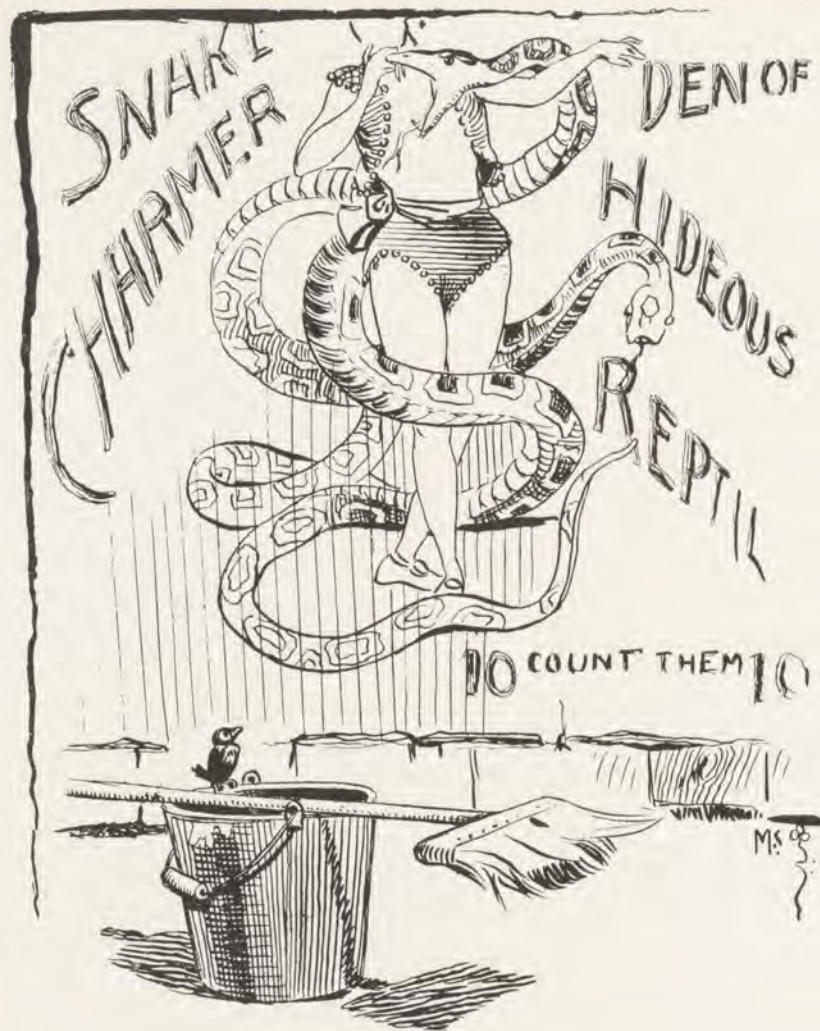 SNAKE
CHARMER
DEN OF
HIDEOUS
REPTIL
10 COUNT THEM 10